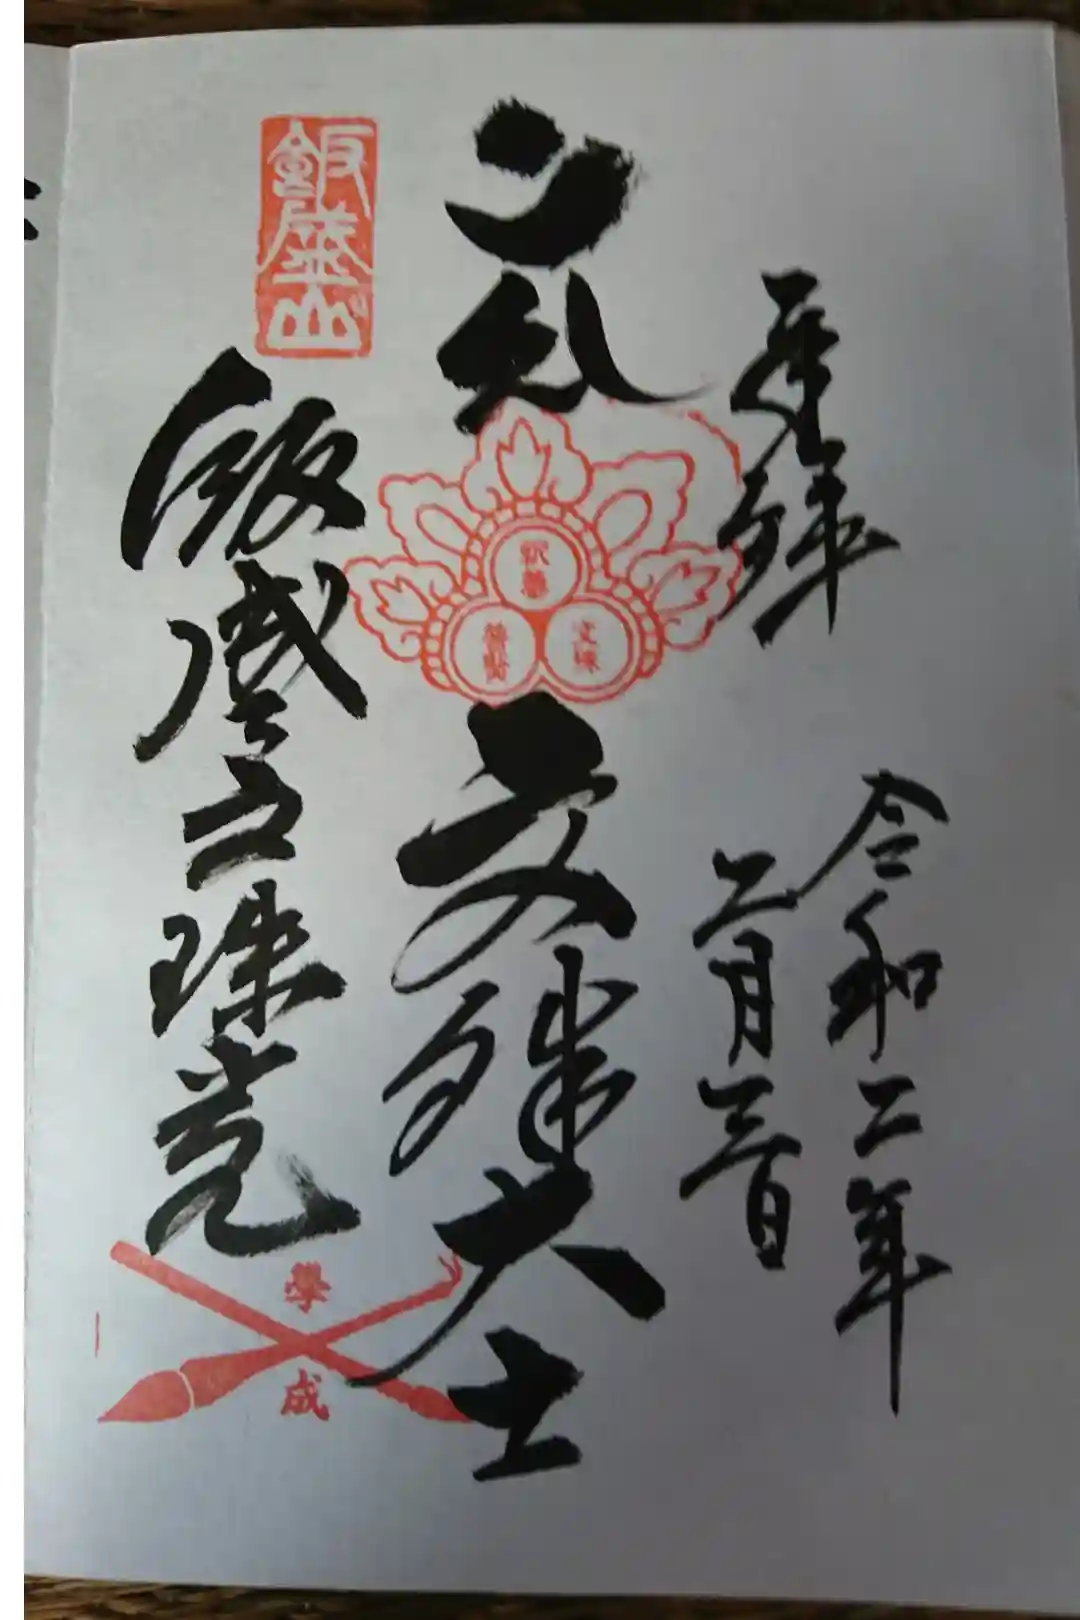 奉拝
令和二年
二月三日
文殊大士
釈尊
文殊
普賢
飯盛山
飯盛珠光
學成